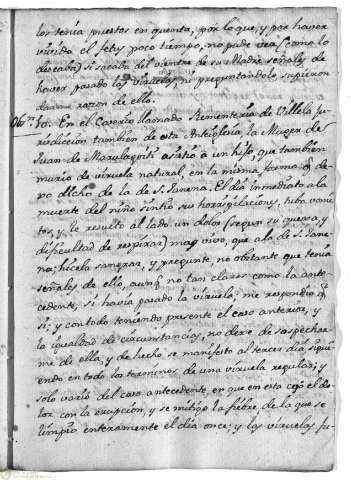 los tenia puestos en quenta, por lo que, y por haver
vivido el fety poco tiempo, no pude ver (como lo
deseaba) si sacaba del vientre de su Madre señales de
haver pasado las viruelas, ni preguntandolo supieron
darme razon de ello.
En el Caserio llamado Rementeria de Villela Ju-
risdiccion tambien de esta Anteiglesia, la Muger de
Juan de asistio a un hijo, que tambien
murio de viruela natural, en la misma forma q̃ de-
po dicho de la de S. El dia inmediato a la
muerte del niño sintio sus horripilaciones, tubo vomi-
tos, y le resultò al lado un dolor (segun su quexa, y
dificultad de respirar) mas vivo, que a la de
hicela sangrar, y preguntè, no obstante que tenia
señales de ello, aunq̃ no tan claras como la ante-
cedente, si havia pasado la viruela; me respondio q̃
si; y con todo teniendo presente el caso anterior, y
la igualdad de circunstancias, no dexe de sospechar
me de ella; y de hecho se manifestò al tercer dia sigui-
endo en todo los terminos de una viruela regular; y
solo varió del caso antecedente, en que en esta cejó el do-
lor con la erupcion, y se mitigò la fiebre, de la que se
limpio enteramente el dia once; y las viruelas fu-